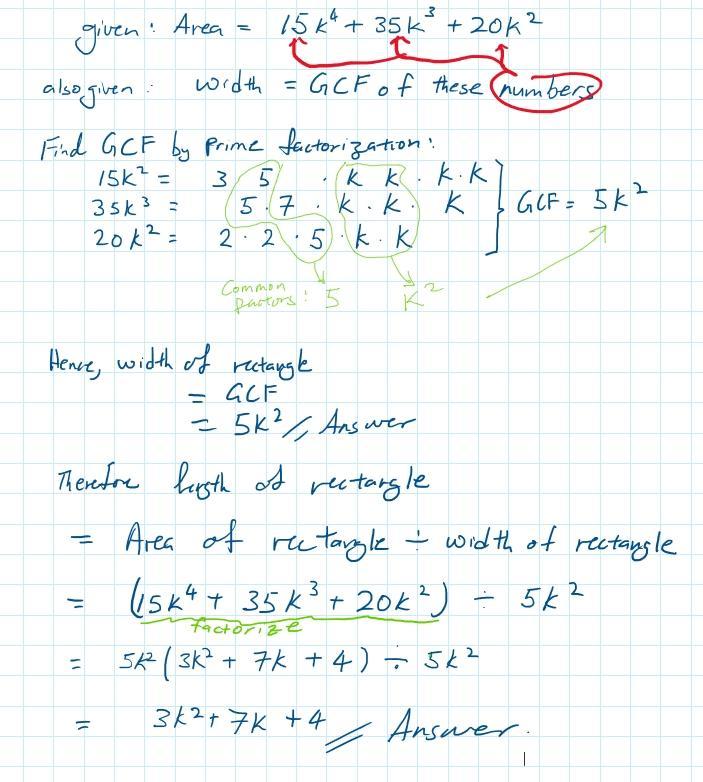 given: Area = 15k⁴ + 35k³ + 20k²
also given: width = GCF of these numbers
Find GCF by prime factorization:
15k² = 3 5 · k k · k·k
35k³ = 5·7 · k·k· k
20k² = 2·2·5·k·k
GCF = 5k²
Common factors: 5 k²
Hence, width of rectangle
= GCF
= 5k² // Answer
Therefore length of rectangle
= Area of rectangle ÷ width of rectangle
= (15k⁴ + 35k³ + 20k²) ÷ 5k²
factorize
= 5k²(3k² + 7k + 4) ÷ 5k²
= 3k² + 7k + 4 // Answer.